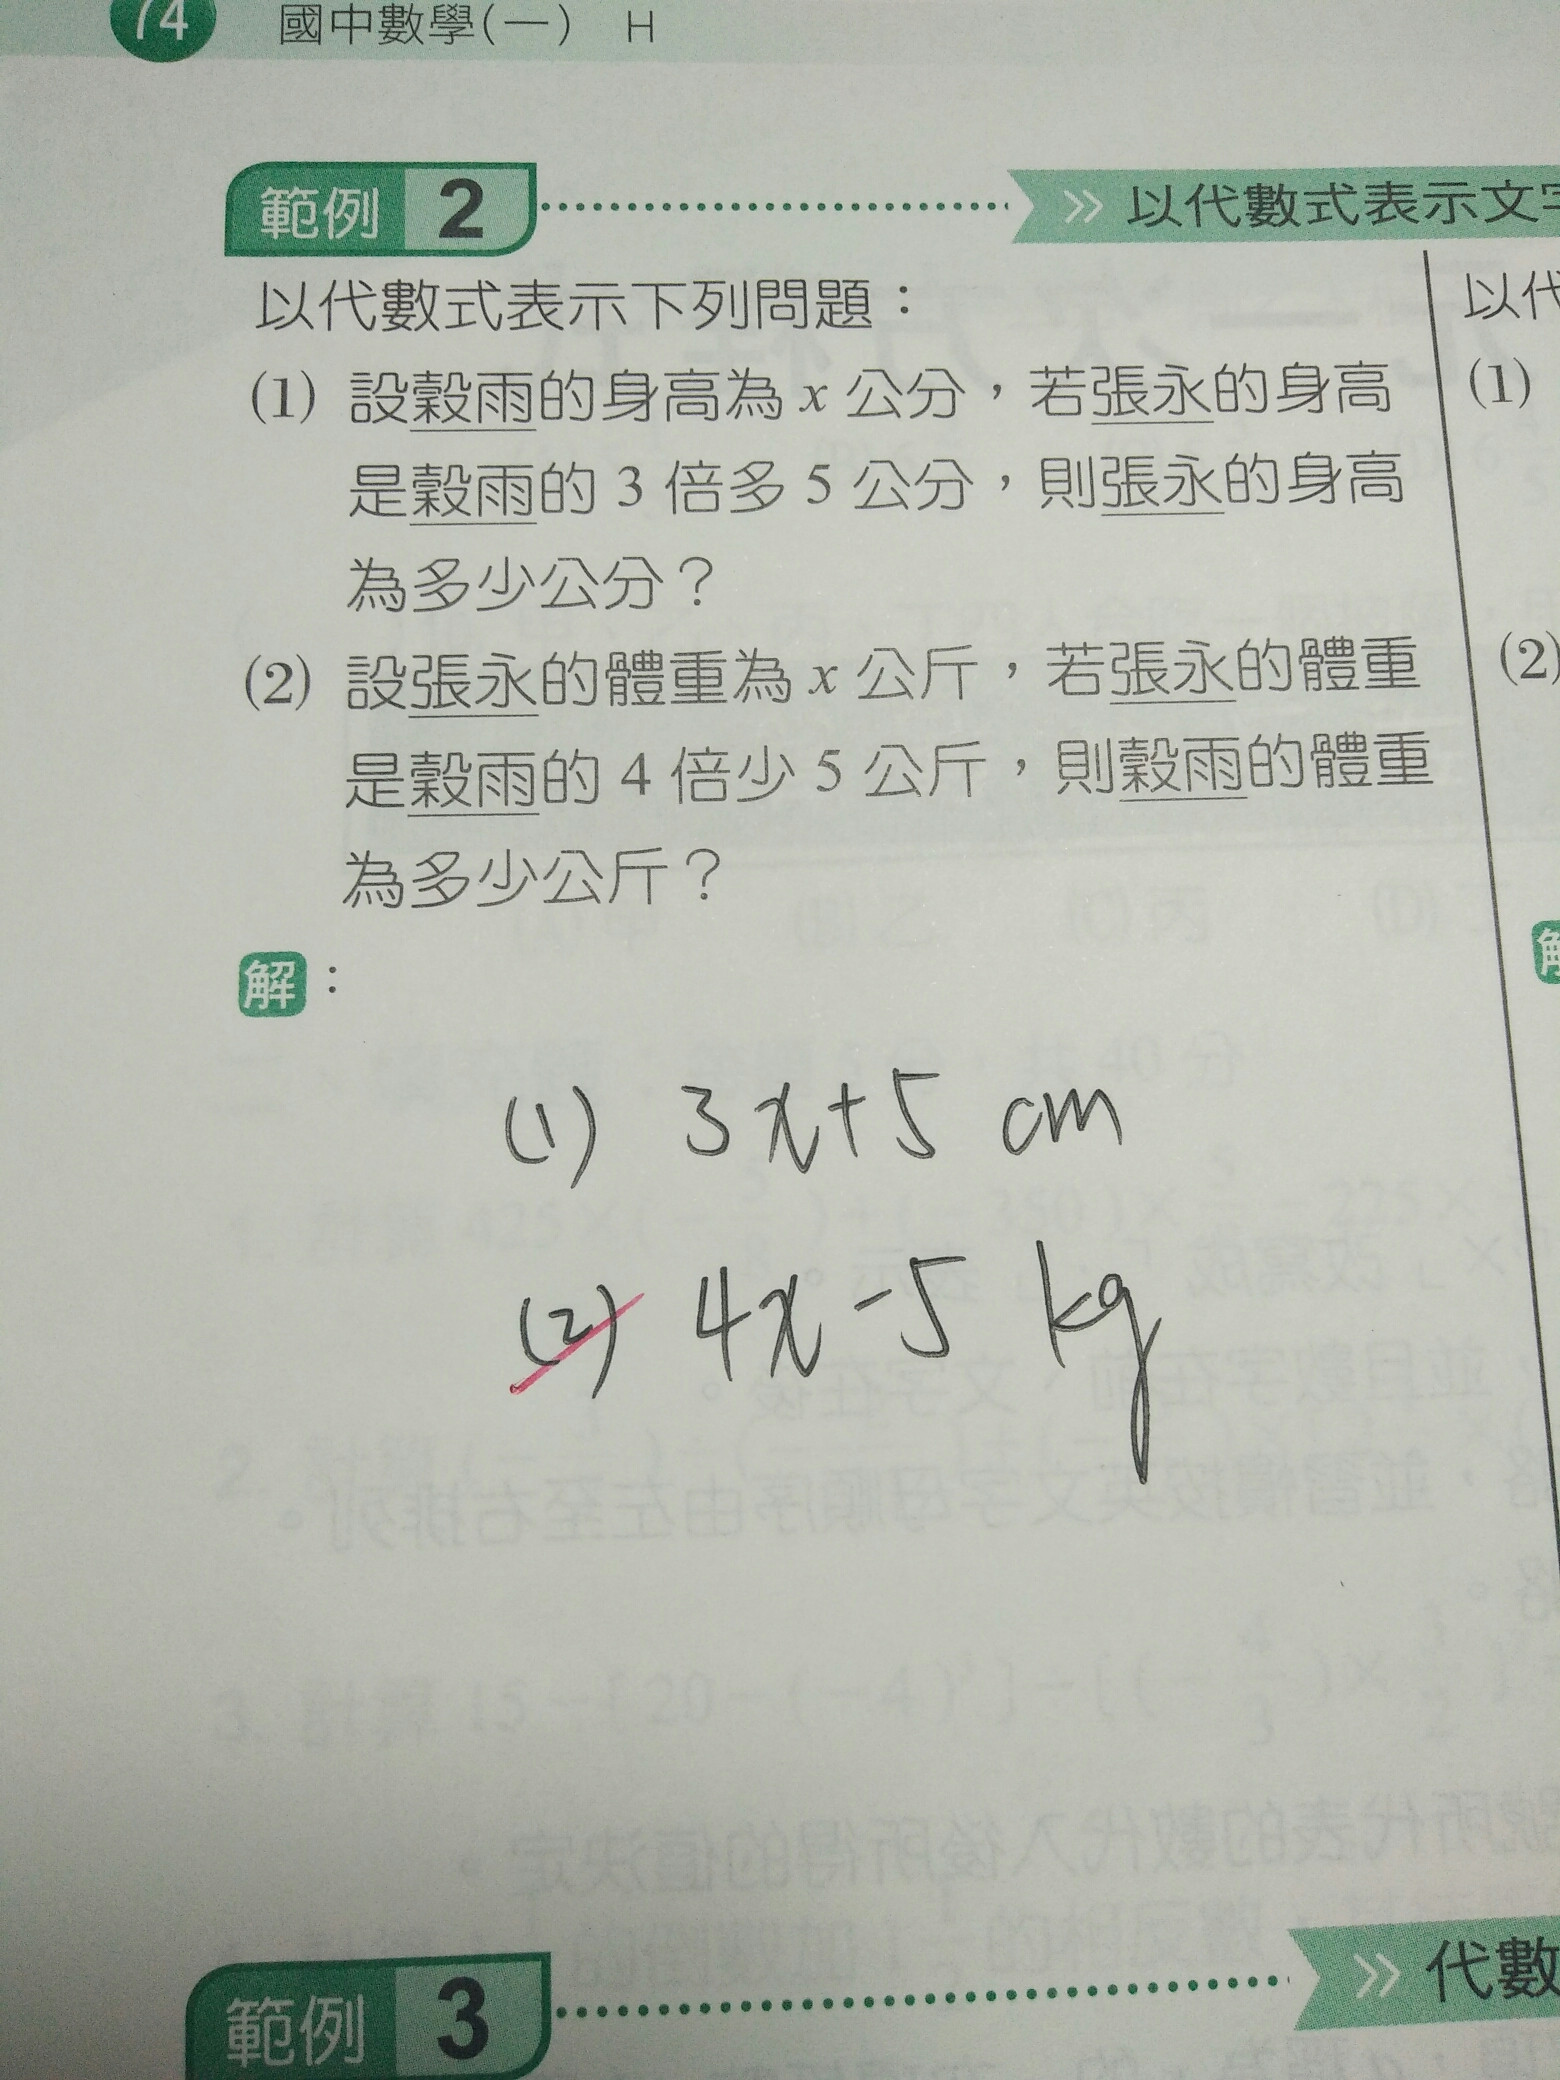 74 國中數學(一) H
範例 2 >> 以代數式表示文字
以代數式表示下列問題：
(1) 設穀雨的身高為 x 公分，若張永的身高
是穀雨的 3 倍多 5 公分，則張永的身高
為多少公分？
(2) 設張永的體重為 x 公斤，若張永的體重
是穀雨的 4 倍少 5 公斤，則穀雨的體重
為多少公斤？
解：
(1) 3x+5 cm
(2) 4x-5 kg
以代
(1)
(2)
解
範例 3 >> 代數